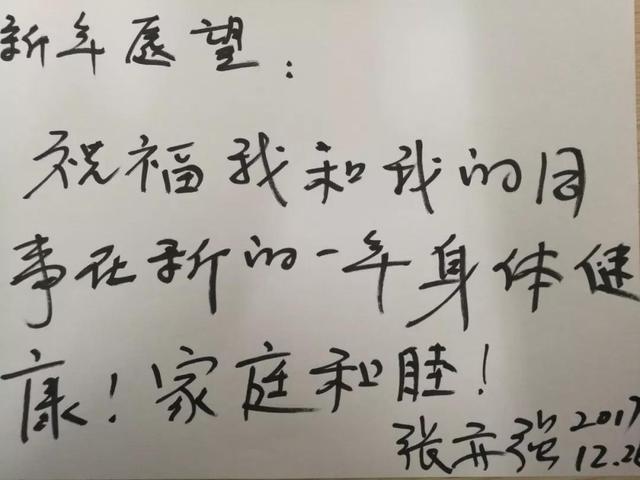 新年愿望：
祝福我和我的同
事在新的一年身体健
康！家庭和睦！
张亚强 2017
12.26